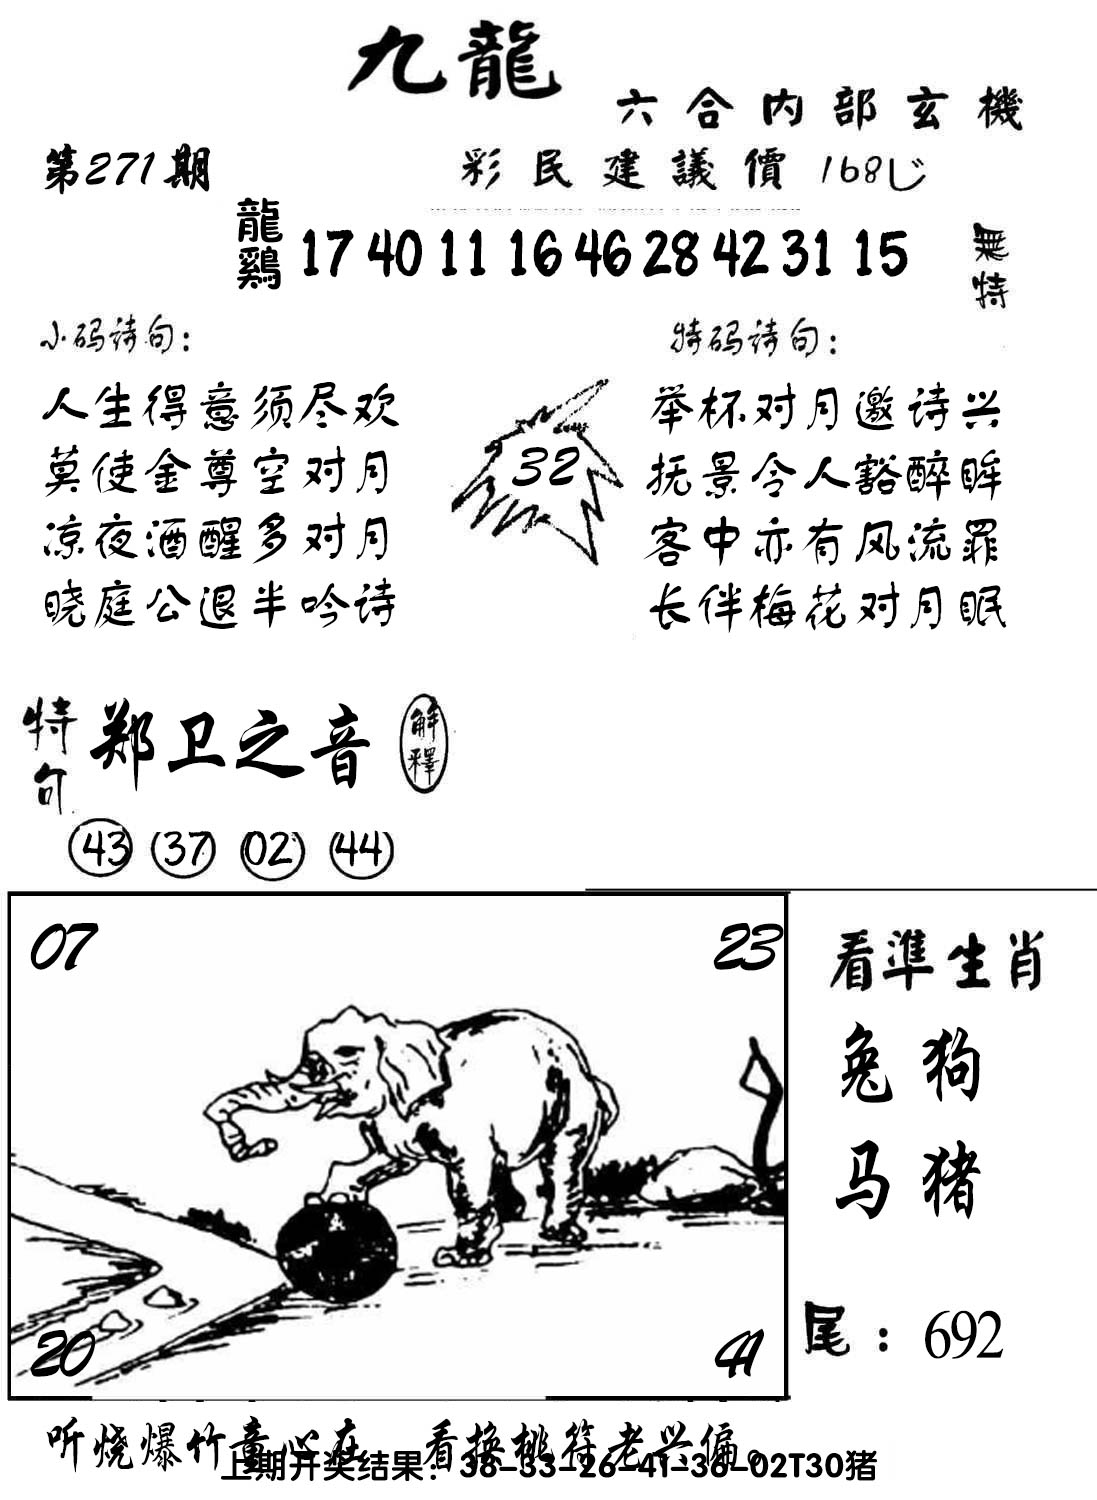 九龍
六合内部玄機
第271期
彩民建議價168
龍鷄 17 40 11 16 46 28 42 31 15 無特
小码诗句：
特码诗句：
人生得意须尽欢
莫使金尊空对月
凉夜酒醒多对月
晓庭公退半吟诗
32
举杯对月邀诗兴
抚景令人豁醉眸
客中亦有风流罪
长伴梅花对月眠
特句 郑卫之音 解釋
43 37 02 44
07 23
20 41
看準生肖
兔狗
马猪
尾：692
听烧爆竹童心在 看换桃符老兴偏。
上期开奖结果：38-33-26-41-36-02T30猪